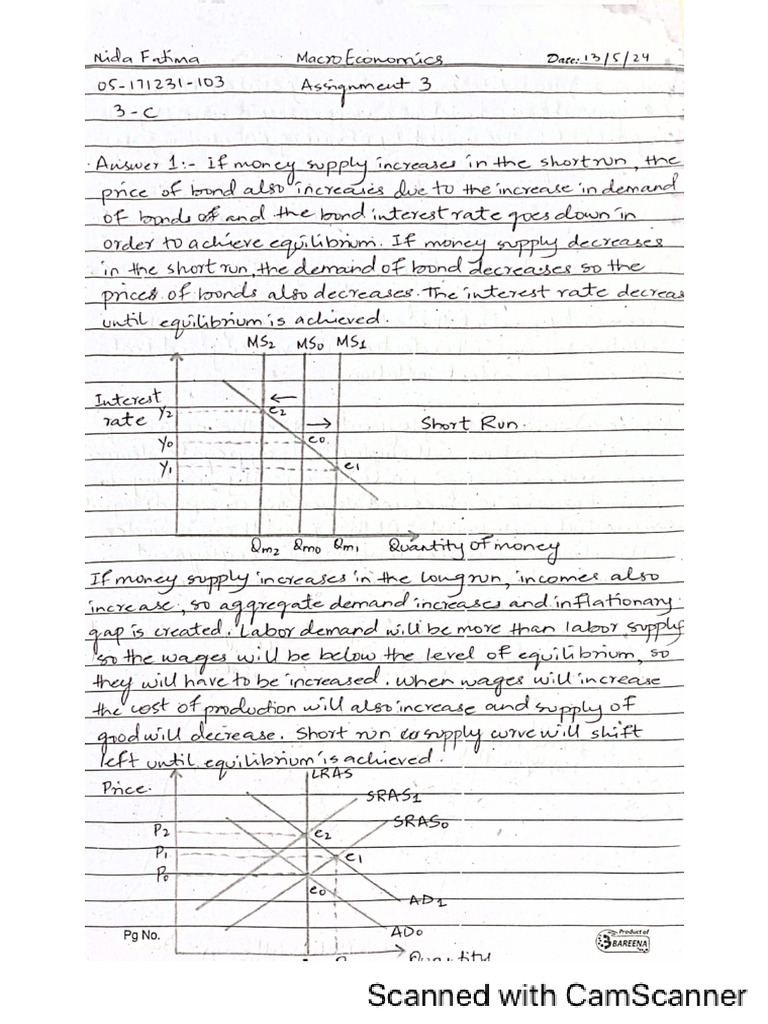 Nida Fatima MacroEconomics Date: 13/5/24
05-171231-103 Assignment 3
3-C
Answer 1:- If money supply increases in the short run, the
price of bond also increases due to the increase in demand
of bonds of and the bond interest rate goes down in
order to achieve equilibrium. If money supply decreases
in the short run, the demand of bond decreases so the
prices of bonds also decreases. The interest rate decreas
until equilibrium is achieved.
MS2 MS0 MS1
Interest
rate Y2 e2 Short Run.
Y0 e0
Y1 e1
Qm2 Qm0 Qm1 Quantity of money
If money supply increases in the long run, incomes also
increase, so aggregate demand increases and inflationary
gap is created. Labor demand will be more than labor supply
so the wages will be below the level of equilibrium, so
they will have to be increased. When wages will increase
the cost of production will also increase and supply of
good will decrease. Short run supply curve will shift
left until equilibrium is achieved.
Price. LRAS
SRAS1
SRAS0
P2 e2
P1 e1
P0
e0
AD1
AD0
Pg No. Product of
BAREENA
Quantity
Scanned with CamScanner